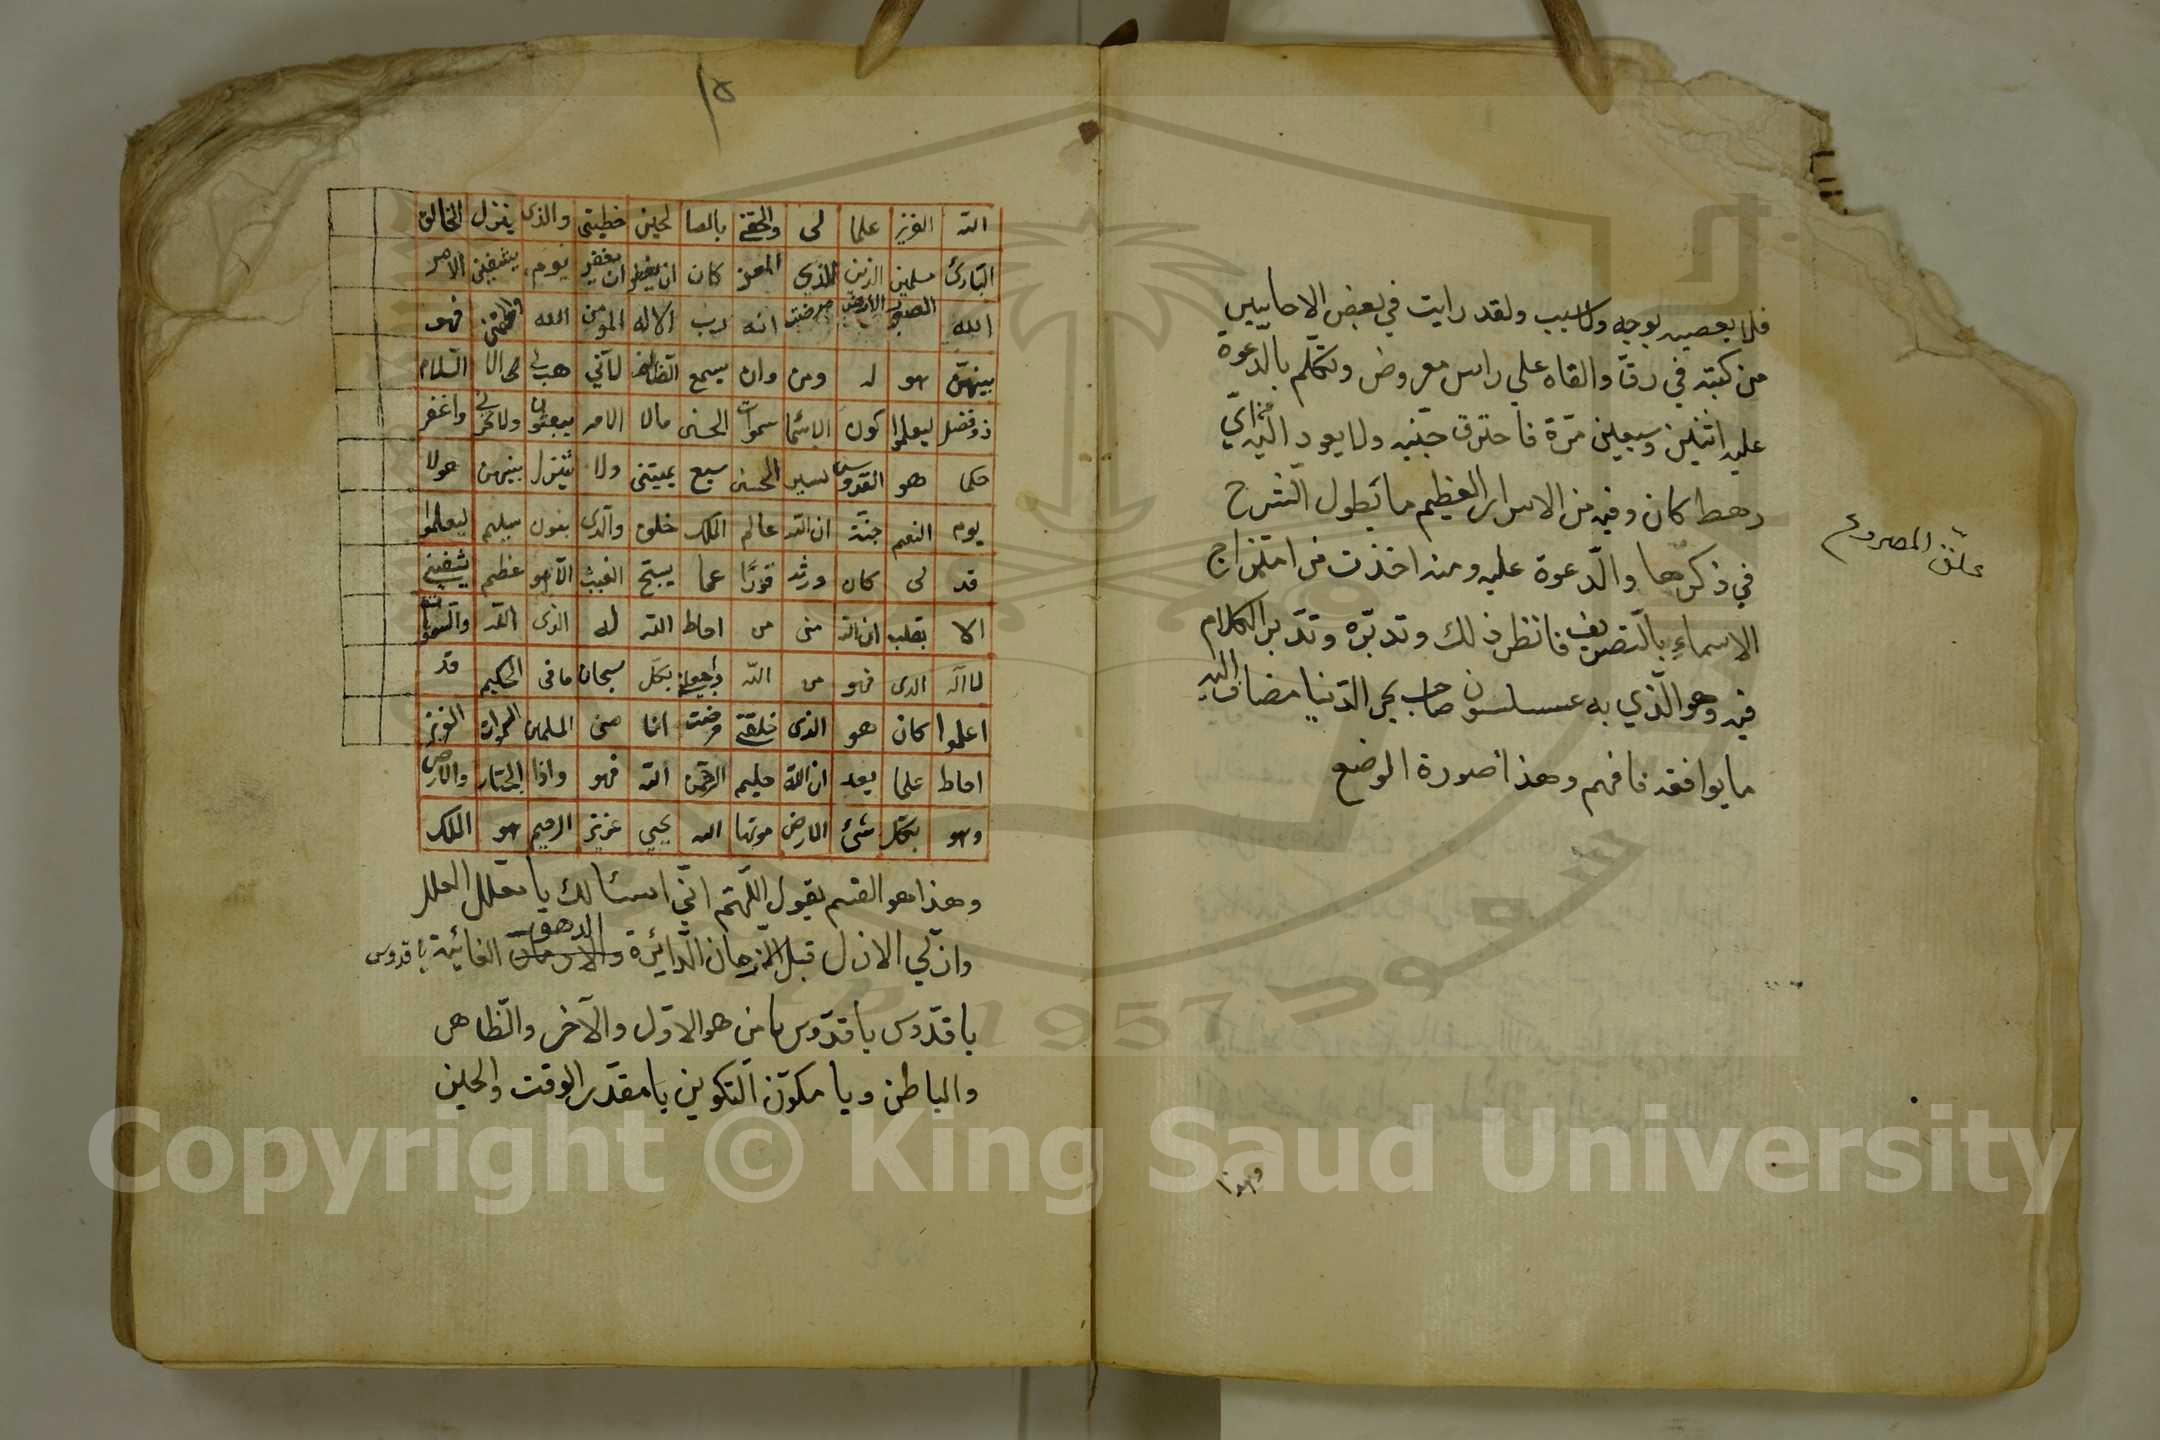 فلا يعصيه بوجه ولا سبب ولقد رايت في بعض الاحايين
من كتبه في رق والقاه علي راس معروض وتكلم بالدعوة
عليه اثنين وسبعين مرة فاحترق جنيه ولا يعود اليه اي
رهط كان وفيه من الاسرار العظيم ما يطول الشرح
في ذكرها والدعوة عليه ومنه اخذت من امتزاج
الاسماء بالتصريف فانظر ذلك وتدبره وتدبر الكلام
فيه وهو الذي به صاحب بحر الدنيا مضاف اليه
ما يوافقه فافهم وهذا صورة الوضع
على المصروع
وهذا
١٥
الله العزيز علما لى والحقنى بالصا لحين خطيتى والذى ينزل الخالق
البارئ مسلمين الذين الذى المعز كان ان يغفر يوم يشفين الامر
الله الارض مرضت انه رب الا له المومن الله فهو
بينهن هو له ومن وان يسمع لمآتي هب لى السلام
ذو فضل ليعلموا كون الاسما سموات الحسنى مالا الامر يبعثون ولا واغفر
حكما هو القدوس الحسنى سبع يميتنى ولا يتنزل بينهن حولا
يوم النعيم جنة ان الله عالم الملك خلق والذى بنون سليم ليعلموا
قد لى كان ورثه عما يسبح الغيب عظيم يشفين
الا بقلب ان الله منى من احاط الله له الذى الله
لا اله الذى فهو من الله بكل سبحان ما فى الحكيم قد
اعلموا كان هو الذى خلقنى مرضت انا العزيز
احاط علما بعد ان الله حليم الرحمن الله فهو واذا الجبار والارض
وهو بكل شئ الارض موتها الله يحيى عزيز الرحيم هو الملك
وهذا هو القسم يقول اللهم اني اسئالك يا معلل العلل
وازلي الازل قبل الازمان الدائرة والدهور الفائية يا قدوس
يا قدوس يا قدوس يا من هو الاول والآخر والظاهر
والباطن ويا مكون التكوين يا مقدر الوقت والحين
1957
Copyright © King Saud University